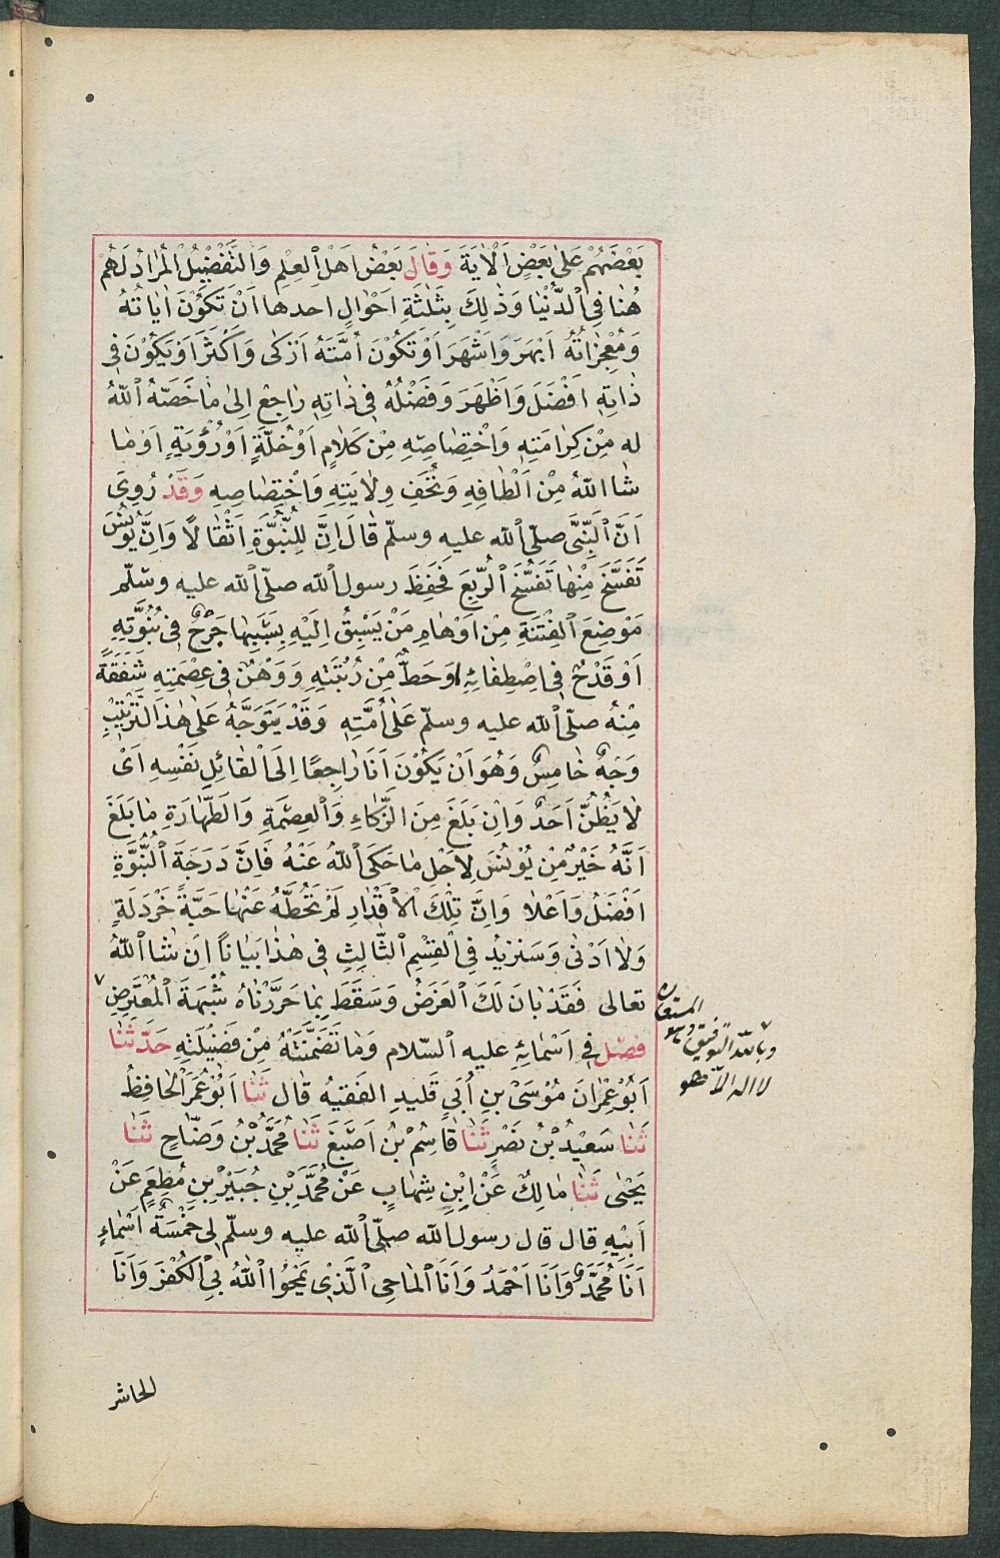 بَعْضَهُمْ عَلٰى بَعْضٍ اَلْاٰيَةَ وَقَالَ بَعْضُ اَهْلِ الْعِلْمِ وَالتَّفْضِيْلُ الْمُرَادُ لَهُمْ
هُنَا فِي الدُّنْيَا وَذٰلِكَ بِثَلٰثَةِ اَحْوَالٍ احدها اَنْ تَكُوْنَ اٰيَاتُهُ
وَمُعْجِزَاتُهُ اَبْهَرَ وَاَشْهَرَ اَوْ تَكُوْنَ اُمَّتَهُ اَزْكٰى وَاَكْثَرَ اَوْ يَكُوْنَ فِى
ذَاتِهِ اَفْضَلَ وَاَظْهَرَ وَفَضْلُهُ فِى ذَاتِهِ رَاجِعٌ اِلٰى مَا خَصَّهُ اللّٰهُ
له مِنْ كِرَامَتِهِ وَاخْتِصَاصِهِ مِنْ كَلَامٍ اَوْ خُلَّةٍ اَوْ رُؤْيَةٍ اَوْ مَا
شَا اللّٰهُ مِنْ اَلْطَافِهِ وَتُحَفِ وِلَايَتِهِ وَاخْتِصَاصِهِ وَقَدْ رُوِىَ
اَنَّ النَّبِىَّ صلّى اللّٰه عليه وسلّم قَالَ اِنَّ لِلنُّبُوَّةِ اَثْقَالًا وَاِنَّ يُوْنُسَ
تَفَسَّخَ مِنْهَا تَفَسُّخَ الرُّبَعِ فَحَفِظَ رسول اللّٰه صلّى اللّٰه عليه وسلّم
مَوْضِعَ الْفِتْنَةِ مِنْ اَوْهَامِ مَنْ يَسْبِقُ اِلَيْهِ بِسَبَبِهَا جَرْحٌ فِى نُبُوَّتِهِ
اَوْ قَدْحٌ فِى اِصْطِفَائِهِ اَوْ حَطٌّ مِنْ رُتْبَتِهِ وَوَهْنٌ فِى عِصْمَتِهِ شَفَقَةً
مِنْهُ صلّى اللّٰه عليه وسلّم عَلٰى اُمَّتِهِ وَقَدْ يَتَوَجَّهُ عَلٰى هٰذَا التَّرْتِيْبِ
وَجْهٌ خَامِسٌ وَهُوَ اَنْ يَكُوْنَ اَنَا رَاجِعًا اِلَى الْقَائِلِ نَفْسِهِ اَىْ
لَا يَظُنُّ اَحَدٌ وَاِنْ بَلَغَ مِنَ الزَّكَاءِ وَالْعِصْمَةِ وَالطَّهَارَةِ مَا بَلَغَ
اَنَّهُ خَيْرٌ مِنْ يُوْنُسَ لِاَجْلِ مَا حَكَى اللّٰهُ عَنْهُ فَاِنَّ دَرَجَةَ النُّبُوَّةِ
اَفْضَلُ وَاَعْلَا وَاِنَّ تِلْكَ الْاَقْدَارِ لَمْ تَحُطَّهُ عَنْهَا حَبَّةَ خَرْدَلَةٍ
وَلَا اَدْنٰى وَسَنَزِيْدُ فِى الْقِسْمِ الثَّالِثِ فِى هٰذَا بَيَانًا اِنْ شَا اللّٰهُ
تعالى فَقَدْ بَانَ لَكَ الْغَرَضُ وَسَقَطَ بِمَا حَرَّرْنَاهُ شُبْهَةَ الْمُعْتَرِضِ
المستعان
وبالله التوفيق وهو
لا اله الّا هو
فصل فِى اَسْمَائِهِ عليه السّلام وَمَا تَضَمَّنَتْهُ مِنْ فَضِيْلَتِهِ حَدَّثَنَا
اَبُوْ عِمْرَانَ مُوْسَىْ بْنِ اَبِىْ تَلِيدٍ الفَقيْهُ قَالَ ثَنَا اَبُوْ عُمَرَ الْحَافِظُ
ثَنَا سَعِيْدُ بْنُ نَصْرٍ ثَنَا قَاسِمُ بْنُ اَصْبَغَ ثَنَا مُحَمَّدُ بْنُ وَضَّاحٍ ثَنَا
يَحْيٰى ثَنَا مَالِكٌ عَنْ اِبْنِ شِهَابٍ عَنْ مُحَمَّدِ بْنِ جُبَيْرِ بْنِ مُطْعِمٍ عَنْ
اَبِيْهِ قال قال رسول اللّٰه صلّى اللّٰه عليه وسلّم لِى خَمْسَةُ اَسْمَاءٍ
اَنَا مُحَمَّدٌ وَاَنَا اَحْمَدُ وَاَنَا الْمَاحِى الَّذِىْ يَمْحُوا اللّٰهُ بِىَ الْكُفْرَ وَاَنَا
الحاشر